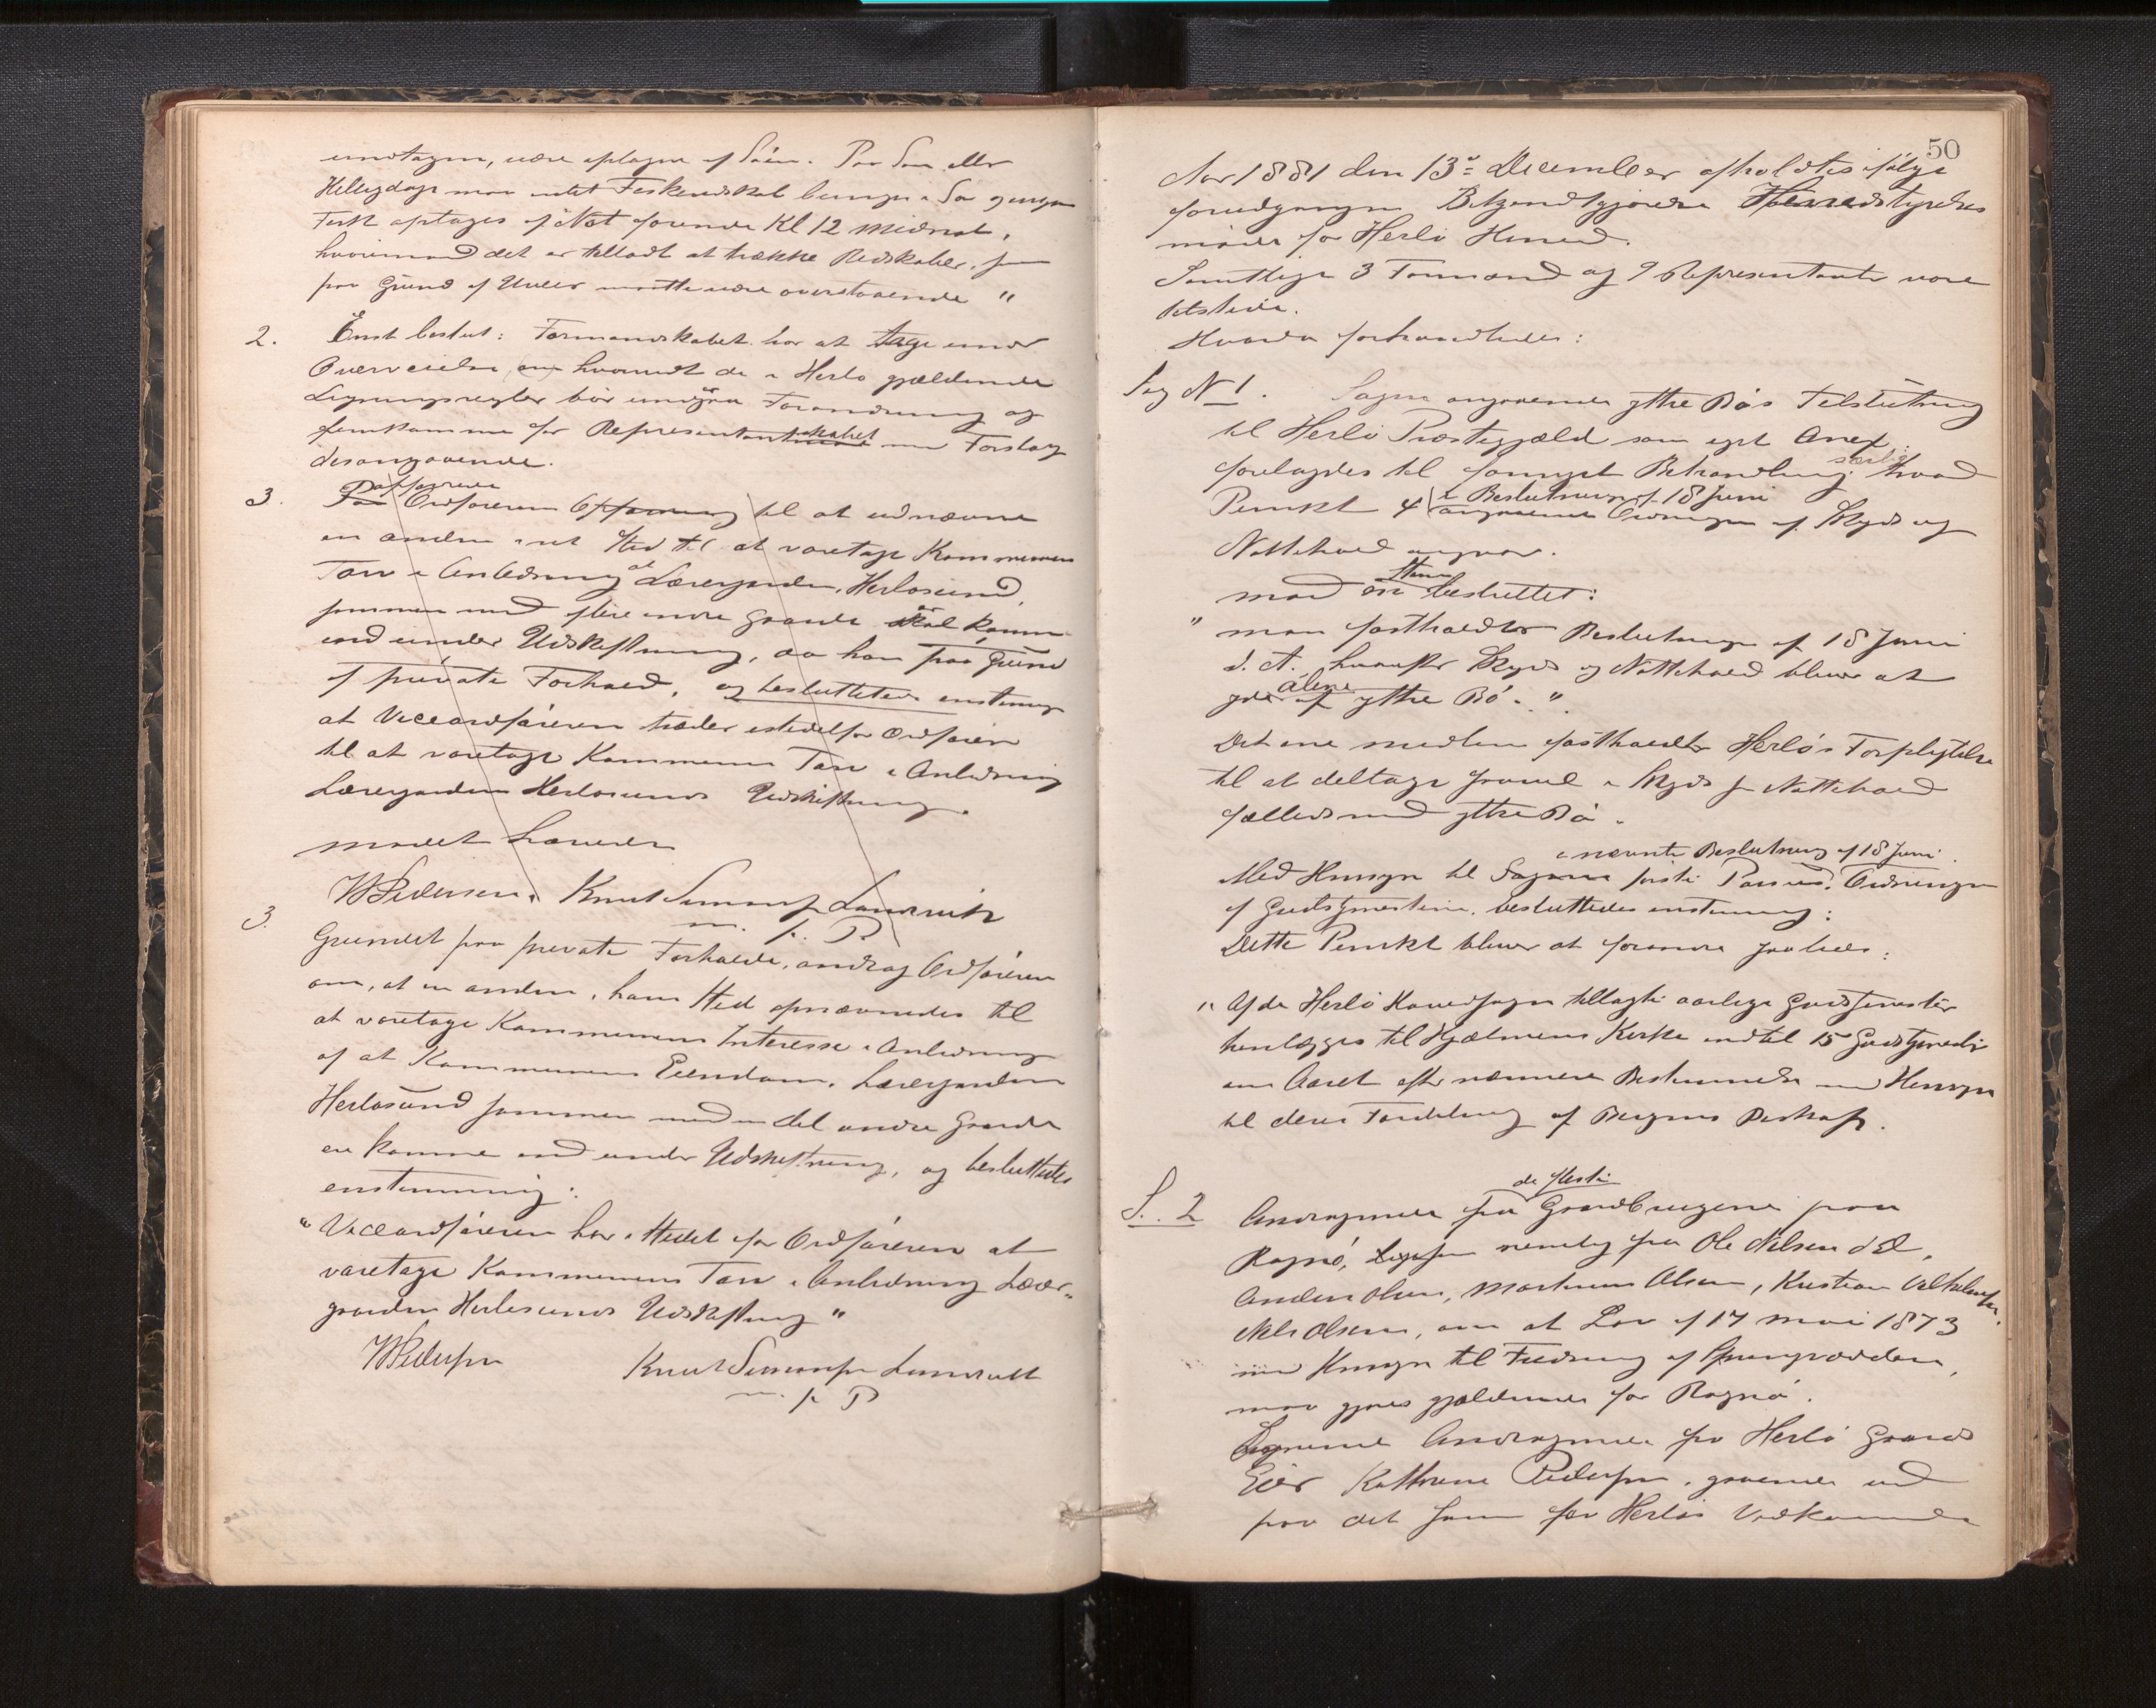 undtagen, være optagne af Søen. Paa Søn eller
Helligdage maa intet Fiskeredskab henge i Sø og ingen
Fisk optages af Nøt førend Kl 12 Midnat,
hvorimod det er tilladt at trække Redskaber, som
paa Grund af Uveir maatte være overstaaende "
2. Enst beslut: Formandskabet har at tage under
Overveielse, om hvorvidt de i Herlø gjældende
Ligningsregler bør undgaa Forandring og
fremkomme for Representantskabet med Forslag
desangaaende.
3. Paa Ordførerens Opfordring til at udnævne
en anden i sit Sted til at varetage Kommunens
Tarv i Anledning at Lærergaarden, Herløsund,
sammen med flere andre Gaarde er komne
ind under Udskiftning, da han paa Grund
af private Forhold, og besluttedes enstemmig
at Viceordføreren træder istedetfor Ordføreren
til at varetage Kommunens Tarv i Anledning
Lærergaarden Herløsunds Udskiftning.
Mødet hævedes
W Pedersen. Knut Simonsen Landsvik
m. p. P.
3. Grundet paa private Forholde, androg Ordføreren
om, at en anden i hans Sted opnævnedes til
at varetage Kommunens Interesse i Anledning
af at Kommunens Eiendom, Lærergaarden
Herløsund sammen med en Del andre Gaarde
er komne ind under Udskiftning, og besluttedes
enstemmig:
" Viceordføreren har i Stedet for Ordføreren at
varetage Kommunens Tarv i Anledning Lærer-
gaarden Herløsunds Udskiftning "
W Pedersen Knut Simonsen Landsvik
m. p. P
50
Aar 1881 den 13de December afholdtes ifølge
forudgangen Bekjendtgjørelse Herredstyrelses
møde for Herlø Herred.
Samtlige 3 Formænd og 9 Representanter vare
tilstede.
Hvorda forhandledes:
Sag No 1. Sagen angaaende Ytre Bøs Tilslutning
til Herlø Præstegjæld som eget Anex,
forelagdes til fornyet Behandling særlig hvad
Punkt 4 i Beslutning af 18 Juni angaaende Ordningen af Skyds og
Nattehold angaar.
Mod en Stemme besluttet:
" Man fastholder Beslutningen af 18 Juni
d. A. hvorefter Skyds og Nattehold bliver at
yde alene af Ytre Bø. "
Det ene Medlem fastholder Herløs Forpligtelse
til at deltage fremdeles i Skyds og Nattehold
fælleds med Ytre Bø.
Med Hensyn til i nævnte Beslutning af 18 Juni første Passus, Ordningen
af Gudstjenesterne, besluttedes enstemmig:
Dette Punkt bliver at forandre saaledes:
" Af de Herlø Hovedsogn tillagte aarlige Gudstjenester
henlægges til Hjelmens Kirke indtil 15 Gudstjenester
om Aaret efter nærmere Bestemmelse med Hensyn
til deres Fordeling af Bergens Biskop.
S. 2 Andragende fra de fleste Gaardbrugerne paa
Rognø, nemlig fra Ole Nilsen d. Æ.
Anders Olsen, Martinus Olsen, Kristian Vilhelmsen,
Nils Olsen, om at Lov af 17 Mai 1873
med Hensyn til Fredning af
maa gjøres gjældende for Rognø.
Lignende Andragende fra Herlø Gaards
Eier Kathrine Pedersen, gaaende ud
paa det samme for Herløs Vedkommende